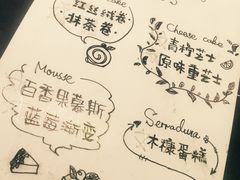 cake
红丝绒卷
抹茶卷
Cheese cake
青柠芝士
原味重芝士
Mousse
百香果慕斯
蓝莓渐变
Serradura
木糠蛋糕